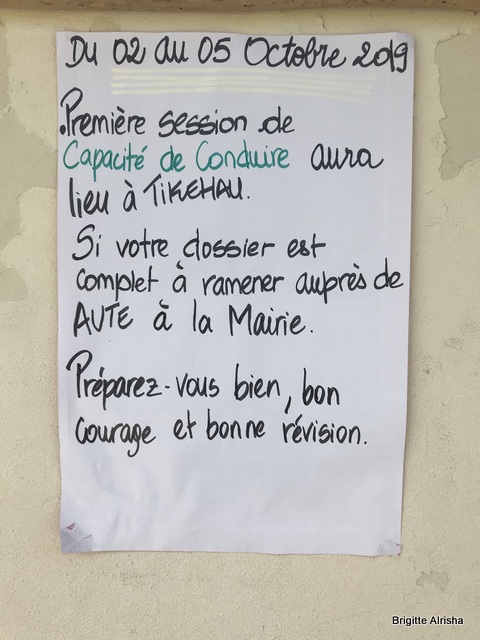 Du 02 au 05 Octobre 2019
Première session de
Capacité de Conduire aura
lieu à TIKEHAU.
Si votre dossier est
complet à ramener auprès de
AUTE à la Mairie.
Préparez-vous bien, bon
courage et bonne révision.
Brigitte Alrisha